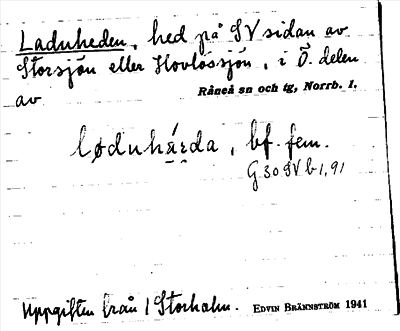 Laduheden, hed på SV sidan av
Storsjön eller Hovlössjön, i Ö. delen
av Råneå sn och tg, Norrb. l.
løduhä́rda, bf. fem.
G 30 SV b 1,91
Uppgiften från 1 Storholm. EDVIN BRÄNNSTRÖM 1941